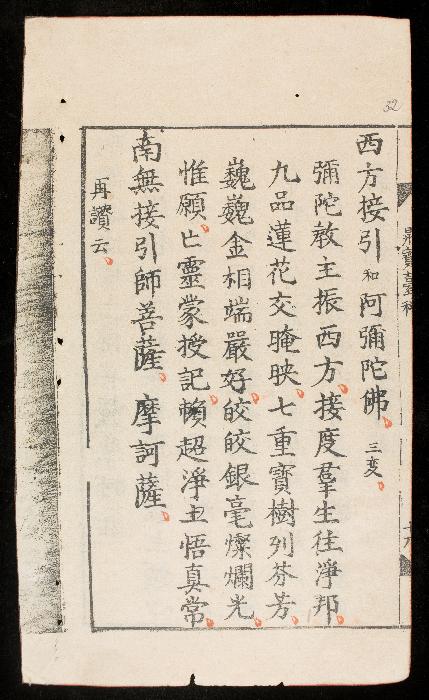 32
西方接引和阿彌陀佛三変
彌陀教主振西方接度羣生往淨邦
九品蓮花交晻映七重寶樹列芬芳
巍巍金相端嚴好皎皎銀毫燦爛光
惟願亡靈蒙授記頼超淨土悟真常
南無接引師菩薩 摩訶薩
再讚云